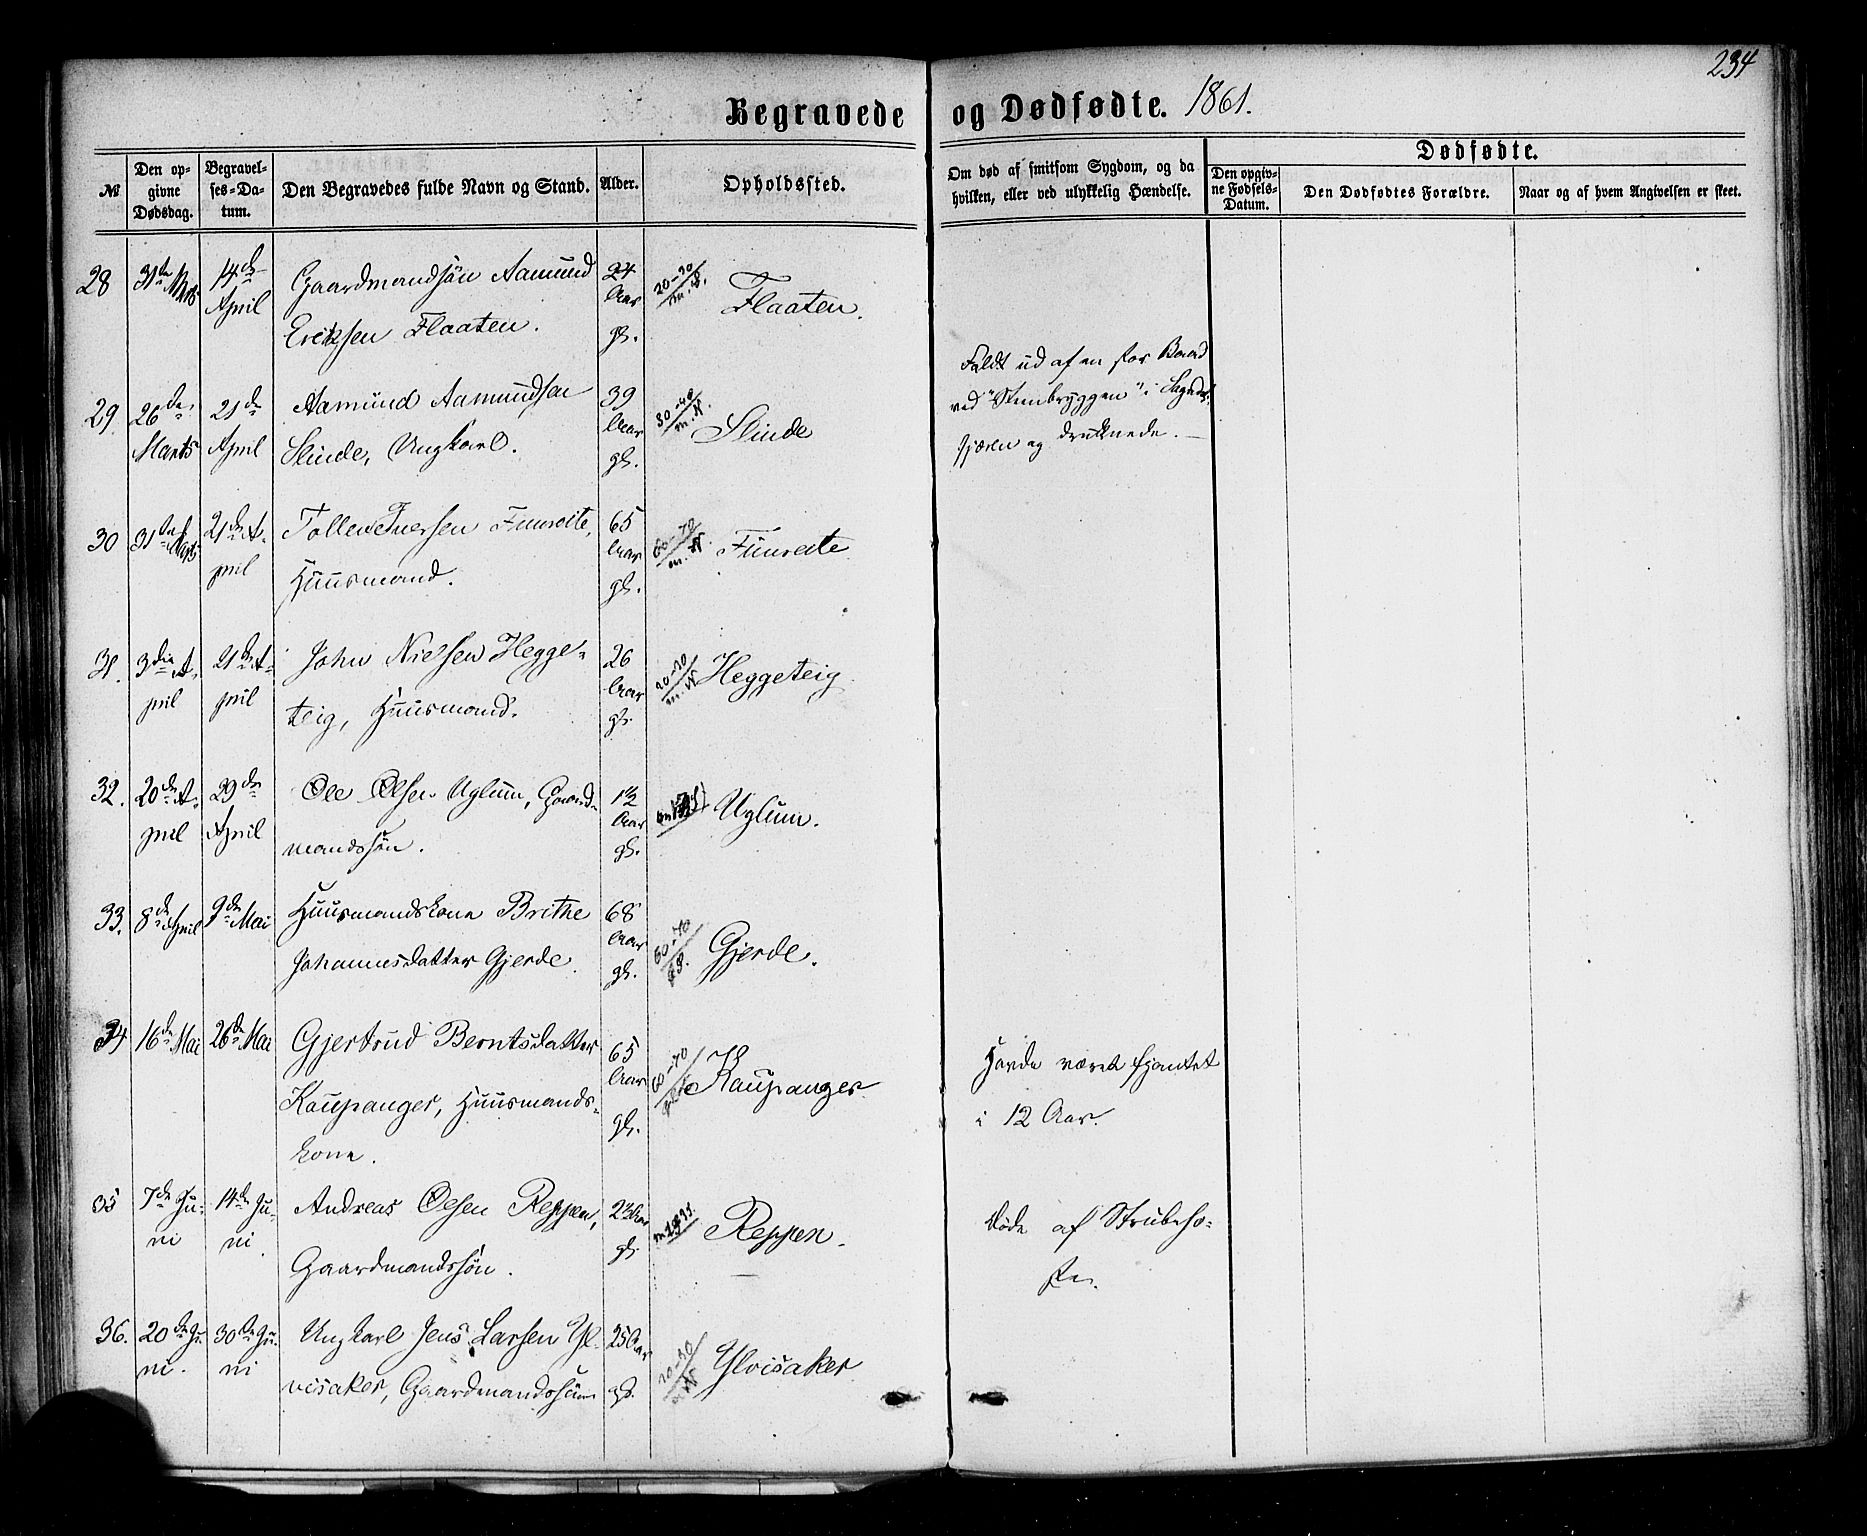 234
Begravede og Dødfødte. 1861.
№
Den op-
givne
Dødsdag.
Begravel-
ses-Da-
tum.
Den Begravedes fulde Navn og Stand.
Alder.
Opholdssted.
Om død af smitsom Sygdom, og da
hvilken, eller ved ulykkelig Hændelse.
Dødfødte.
Den opgiv-
ne Fødsels-
Datum.
Den Dødfødtes Forældre.
Naar og af hvem Angivelsen er skeet.
28
31te Marts
14de
April
Gaardmandsøn Aamund
Eriksen Flaaten.
24
Aar
gl.
20-30
Flaaten.
29
26de
Marts
21de
April
Aamund Aamundsen
Slinde, Ungkarl.
39
Aar
gl.
30-40
Slinde
Faldt ud af en stor Baad
ved "Steenbryggen" i
og druknede.
30
31te Marts
21de A-
pril
Tollev Iversen Fimreite,
Huusmand.
65
Aar
gl.
60-70
Fimreite
31.
3die A-
pril
21de A-
pril
John Nielsen Hegge-
teig, Huusmand.
26
Aar
gl.
20-30
Heggeteig
32.
20de A-
pril
29de
April
Ole Olsen Uglum, Gaard-
mandssøn.
1½
Aar
gl.
Uglum.
33.
8de April
9de Mai
Huusmandskone Brithe
Johannesdatter Gjerde.
68
Aar
gl.
60-70
Gjerde.
34
16de Mai
26de Mai
Gjertrud Berntsdatter
Kaupanger, Huusmands-
kone.
65
Aar
gl.
60-70
Kaupanger
Havde været
i 12 Aar.
35
7de Ju-
ni
14de Ju-
ni
Andreas Olsen Reppen,
Gaardmandssøn.
Aar
gl.
Reppen.
Døde af Strubeho-
ste.
36.
20de Ju-
ni.
30te Ju-
ni
Ungkarl Jens Larsen Yl-
visaker, Gaardmandssøn
25 Aar
gl.
20-30
Ylvisaker